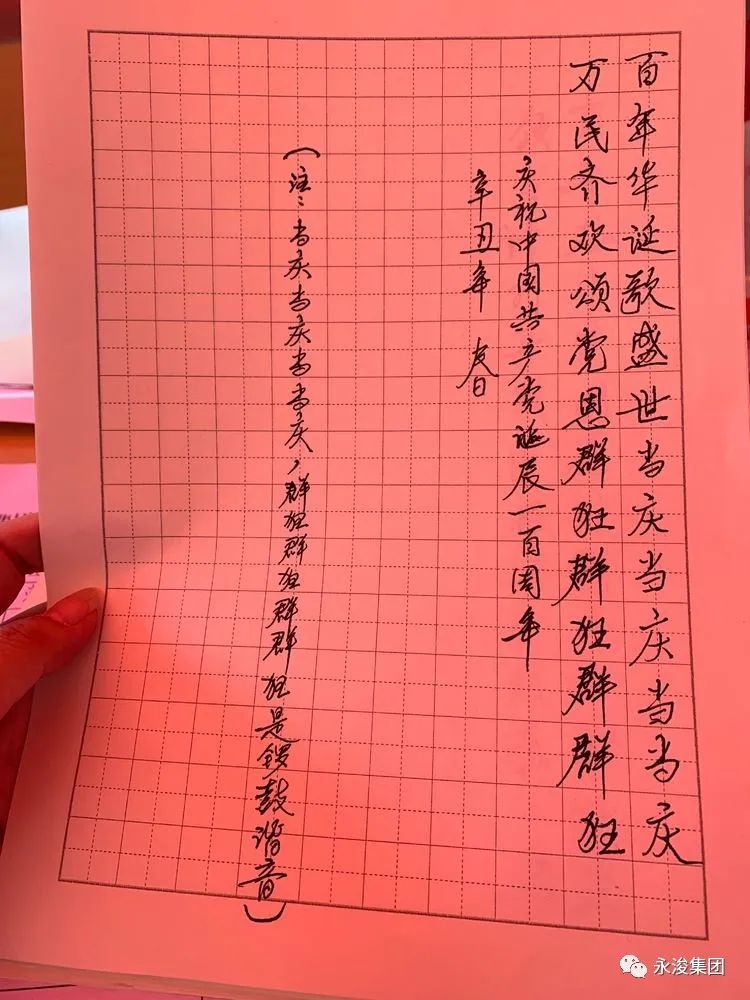 百年华诞歌盛世当庆当庆当当庆
万民齐欢颂党恩群狂群狂群群狂
庆祝中国共产党诞辰一百周年
辛丑年 春日
（注：当庆当庆当当庆，群狂群狂群群狂是锣鼓谐音）
永浚集团